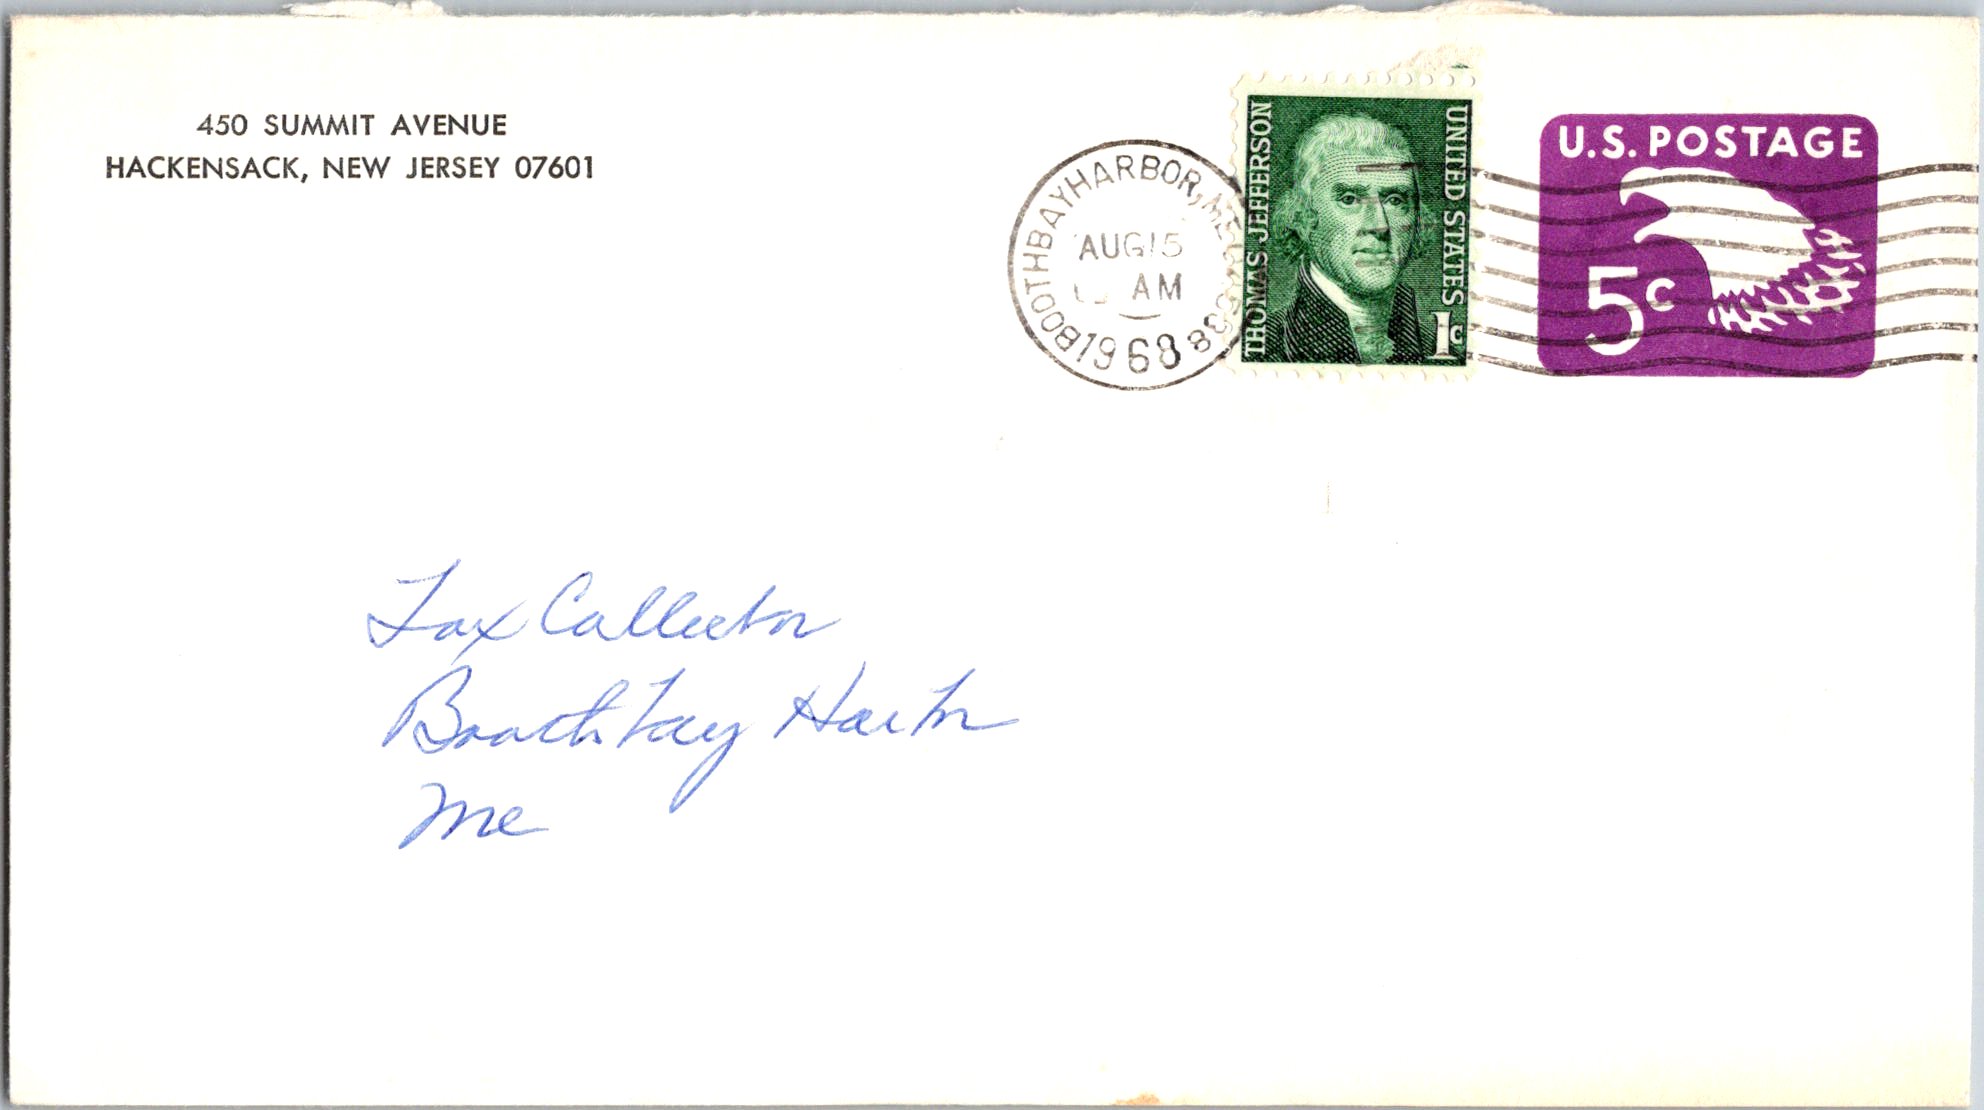 450 SUMMIT AVENUE
HACKENSACK, NEW JERSEY 07601
BOOTHBAY HARBOR, ME
AUG 15
AM
1968
THOMAS JEFFERSON
UNITED STATES
1c
U.S. POSTAGE
5c
Tax Collector
Boothbay Harbor
Me